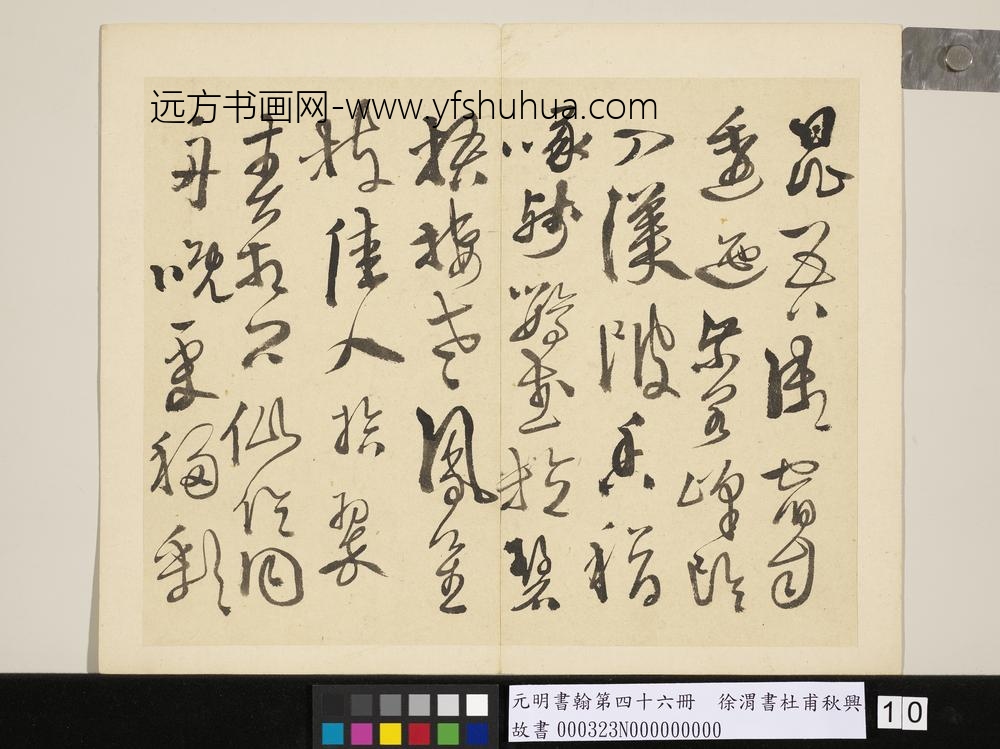 远方书画网-www.yfshuhua.com
昆吾御宿自
逶迤紫閣峰陰
入渼陂香稻
啄殘鸚鵡粒碧
梧棲老鳳凰
枝佳人拾翠
春相問仙侶同
舟晚更移彩
元明書翰第四十六冊　徐渭書杜甫秋興
故書 000323N000000000
10